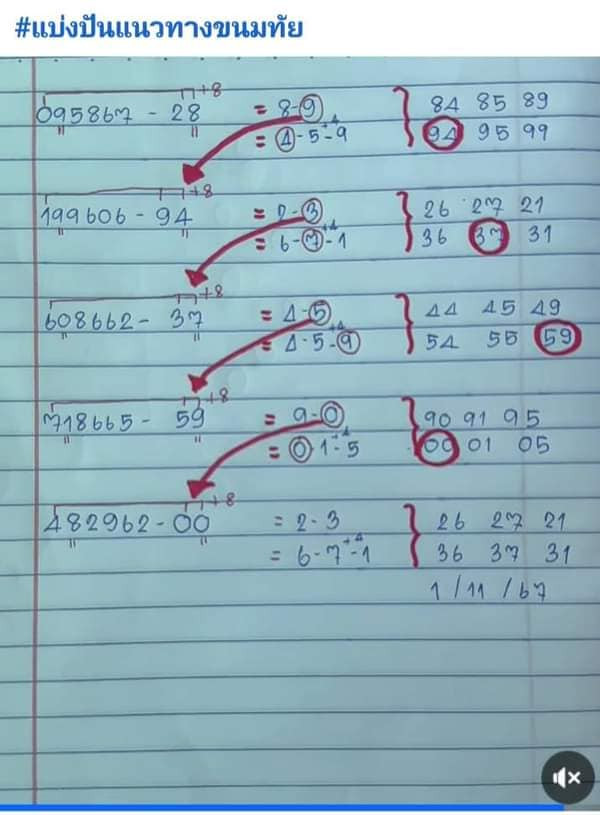 #แบ่งปันแนวทางขนมทัย
+8
095867 - 28 = 8-9 } 84 85 89
= 4-5-9 +4 94 95 99
+8
199606 - 94 = 2-3 } 26 27 21
= 6-7-1 +4 36 37 31
+8
608662 - 37 = 4-5 } 44 45 49
= 4-5-9 +4 54 55 59
+8
718665 - 59 = 9-0 } 90 91 95
= 0 1-5 +4 00 01 05
+8
482962 - 00 = 2-3 } 26 27 21
= 6-7-1 +4 36 37 31
1/11/67